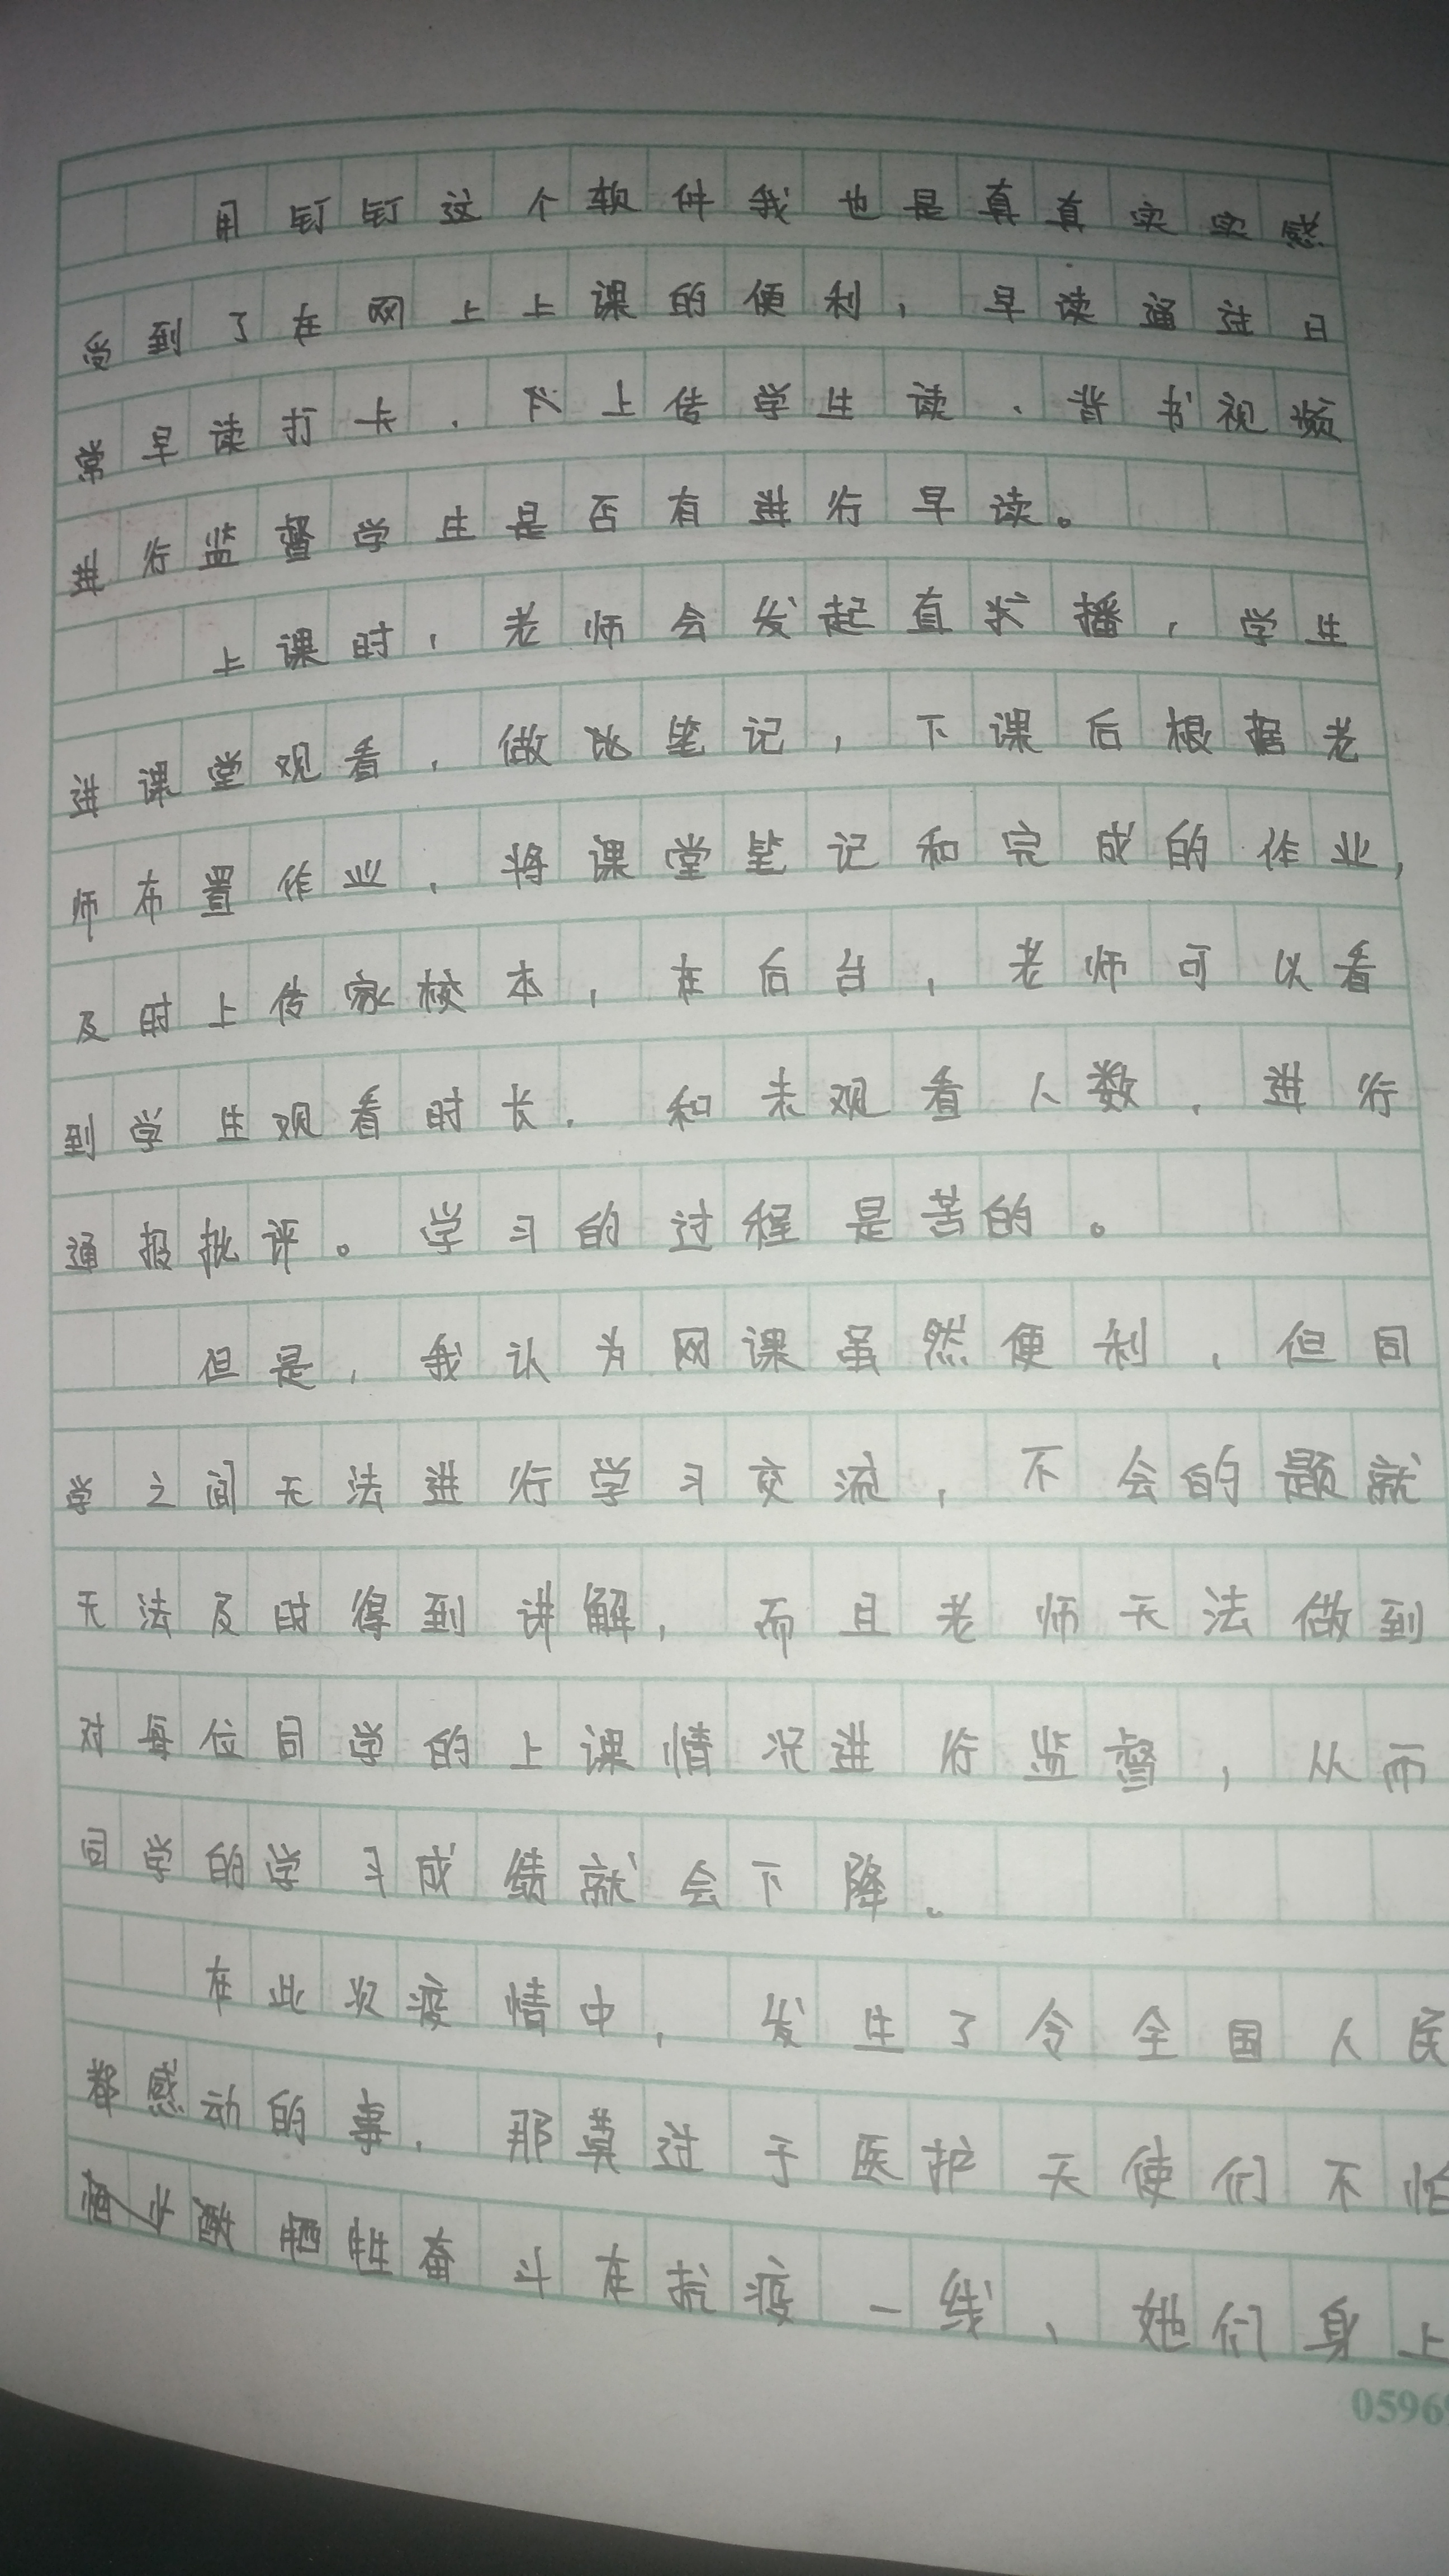 用钉钉这个软件我也是真真实实感
受到了在网上上课的便利，早读通过日
常早读打卡，上传学生读、背书视频
进行监督学生是否有进行早读。
上课时，老师会发起直播，学生
进课堂观看，做笔记，下课后根据老
师布置作业，将课堂笔记和完成的作业，
及时上传家校本，在后台，老师可以看
到学生观看时长，和未观看人数，进行
通报批评。学习的过程是苦的。
但是，我认为网课虽然便利，但同
学之间无法进行学习交流，不会的题就
无法及时得到讲解，而且老师无法做到
对每位同学的上课情况进行监督，从而
同学的学习成绩就会下降。
在此次疫情中，发生了令全国人民
都感动的事，那莫过于医护天使们不怕
牺牲奋斗在抗疫一线、她们身上
0596